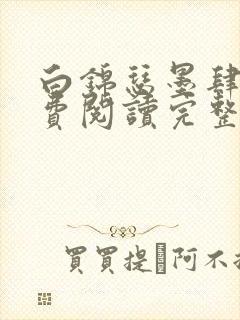 白錦瑟墨肆
費閱讀完整
買買提·阿不拉